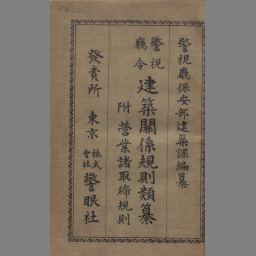 警視廳保安部建築課編纂
警視廳令 建築關係規則類纂
附 營業諸取締規則
發賣所 東京 株式會社 警眼社